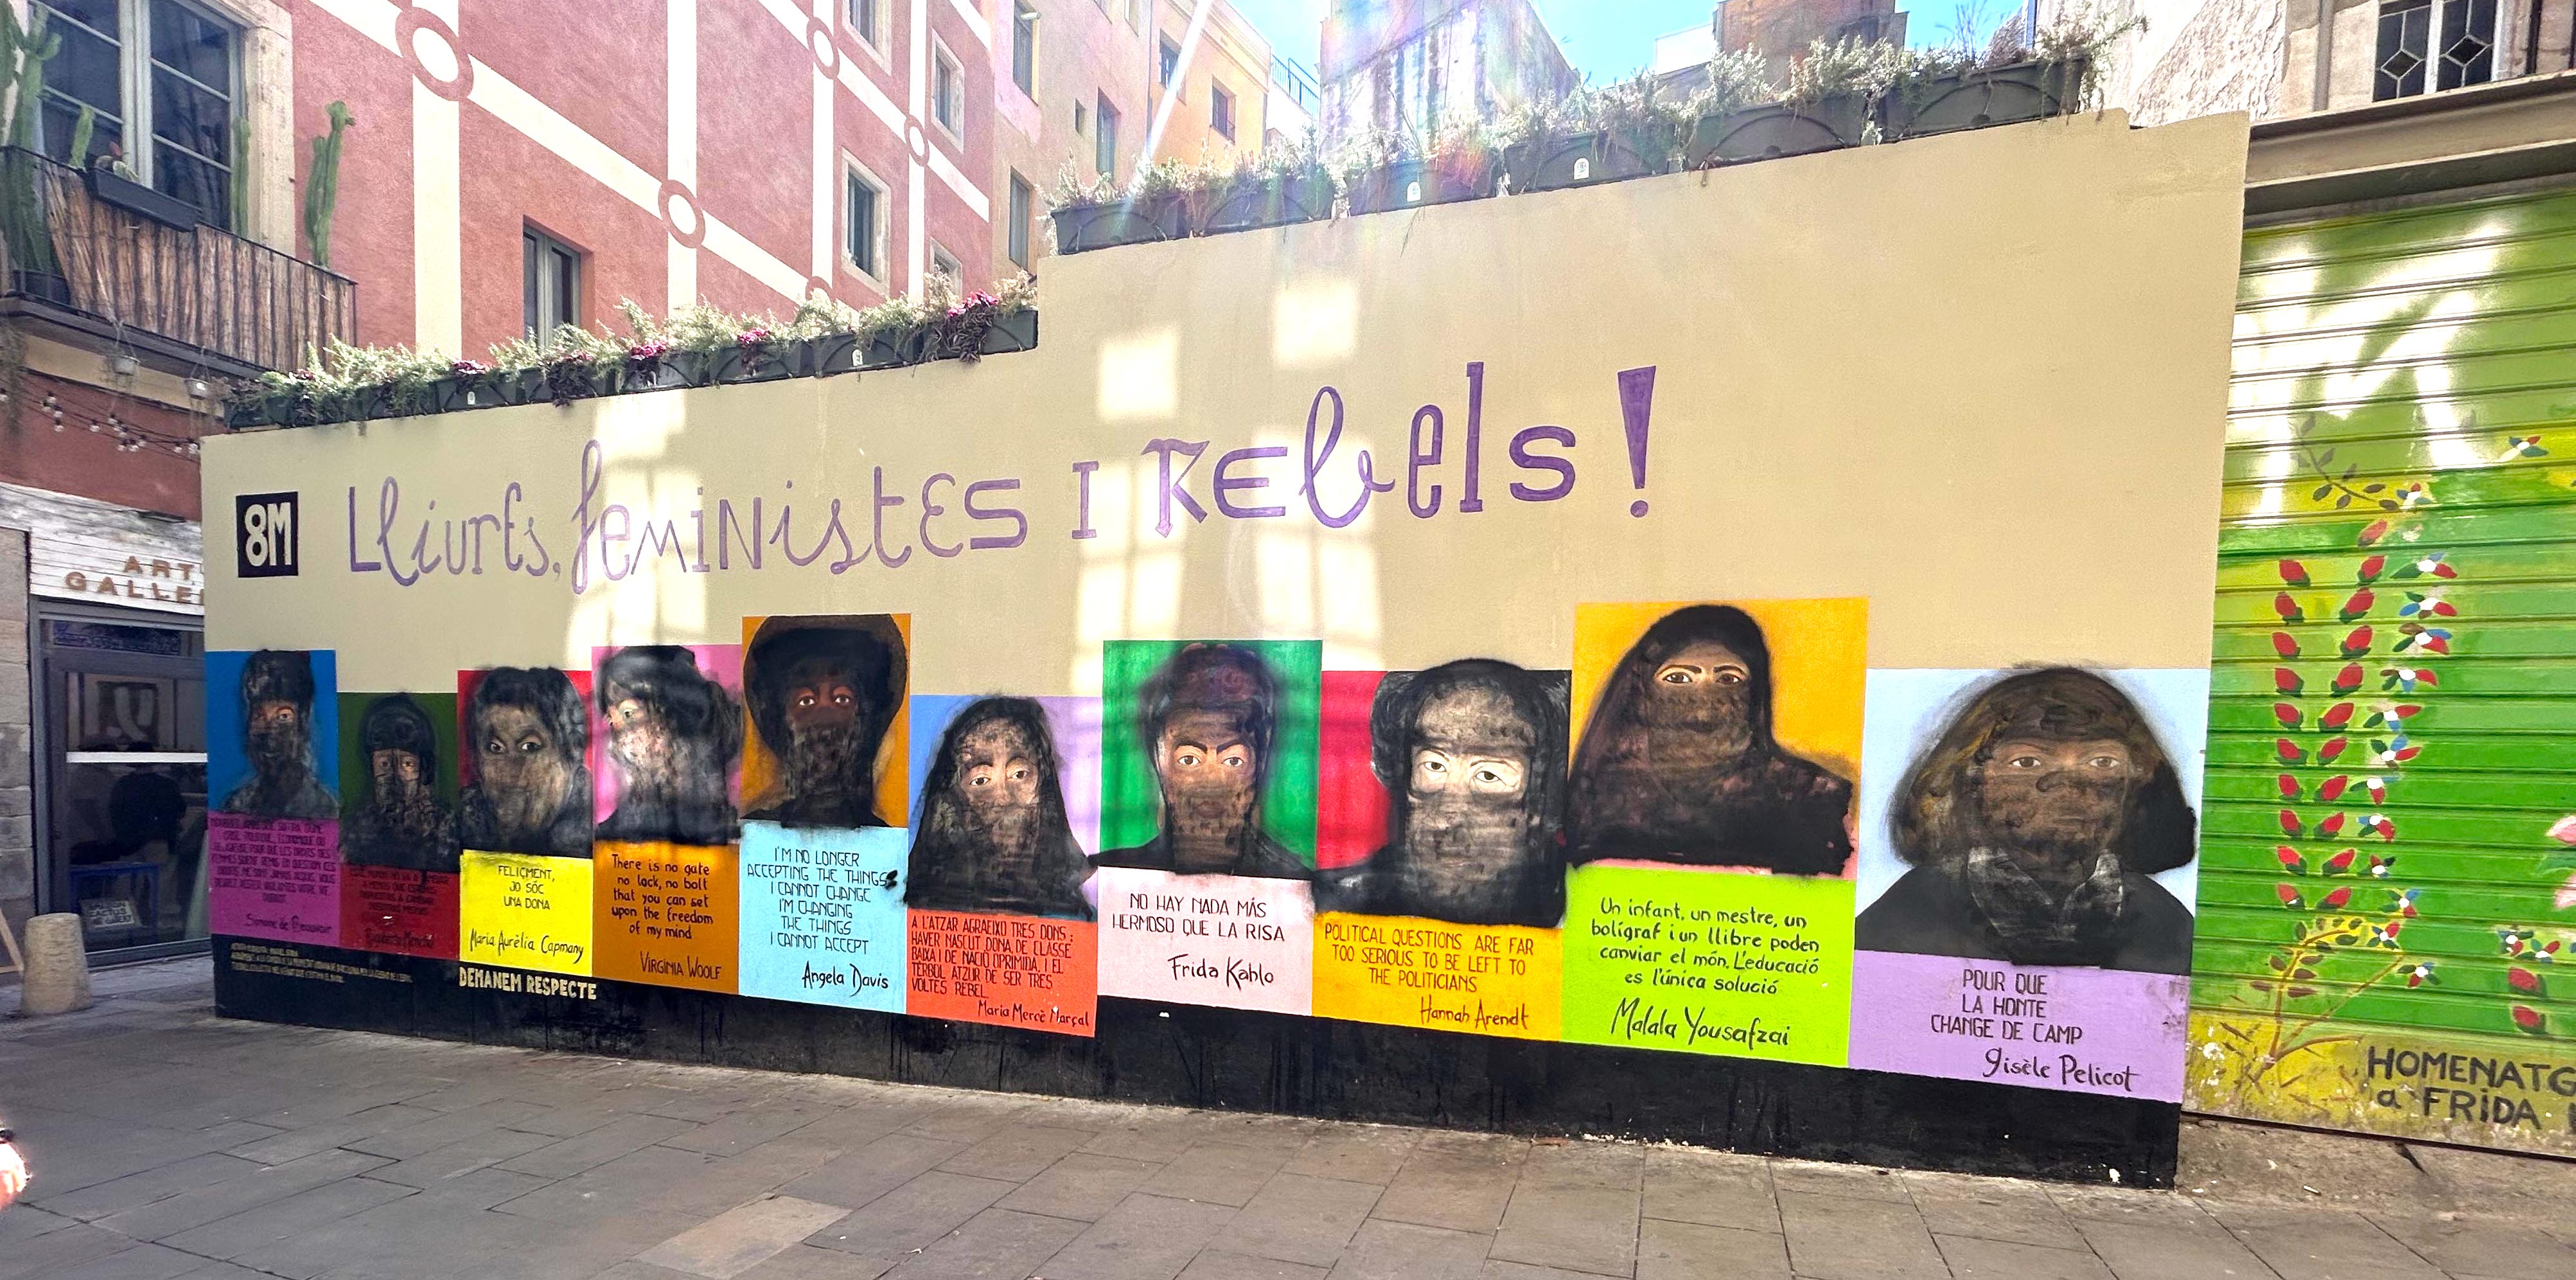 8M
Lliures, feministes i rebels!
ART
GALLE
Simone de Beauvoir
Rigoberta Menchú
FELIÇMENT,
JO SÓC
UNA DONA
Maria Aurèlia Capmany
There is no gate
no lock, no bolt
that you can set
upon the freedom
of my mind
VIRGINIA WOOLF
I'M NO LONGER
ACCEPTING THE THINGS
I CANNOT CHANGE
I'M CHANGING
THE THINGS
I CANNOT ACCEPT
Angela Davis
A L'ATZAR AGRAEIXO TRES DONS:
HAVER NASCUT DONA, DE CLASSE
BAIXA I DE NACIÓ OPRIMIDA, I EL
TÈRBOL ATZUR DE SER TRES
VOLTES REBEL.
Maria Mercè Marçal
NO HAY NADA MÁS
HERMOSO QUE LA RISA
Frida Kahlo
POLITICAL QUESTIONS ARE FAR
TOO SERIOUS TO BE LEFT TO
THE POLITICIANS
Hannah Arendt
Un infant, un mestre, un
bolígraf i un llibre poden
canviar el món. L'educació
es l'única solució
Malala Yousafzai
POUR QUE
LA HONTE
CHANGE DE CAMP
Gisèle Pelicot
DEMANEM RESPECTE
HOMENATG
a FRIDA